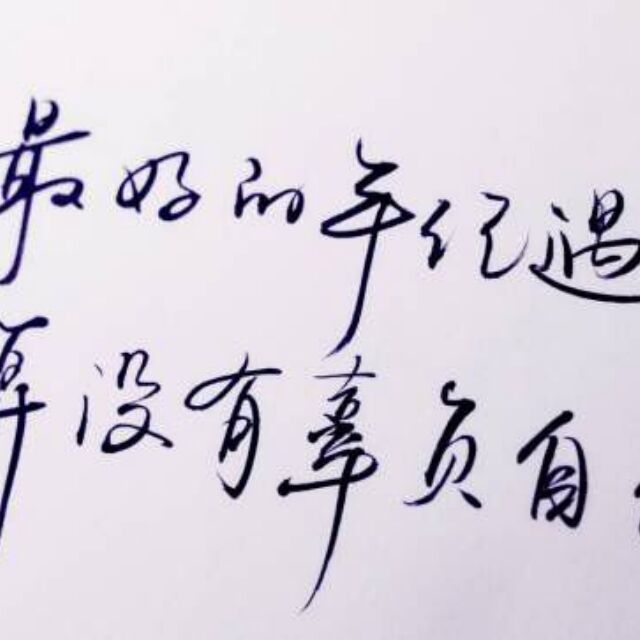 最好的年纪遇
算没有辜负自